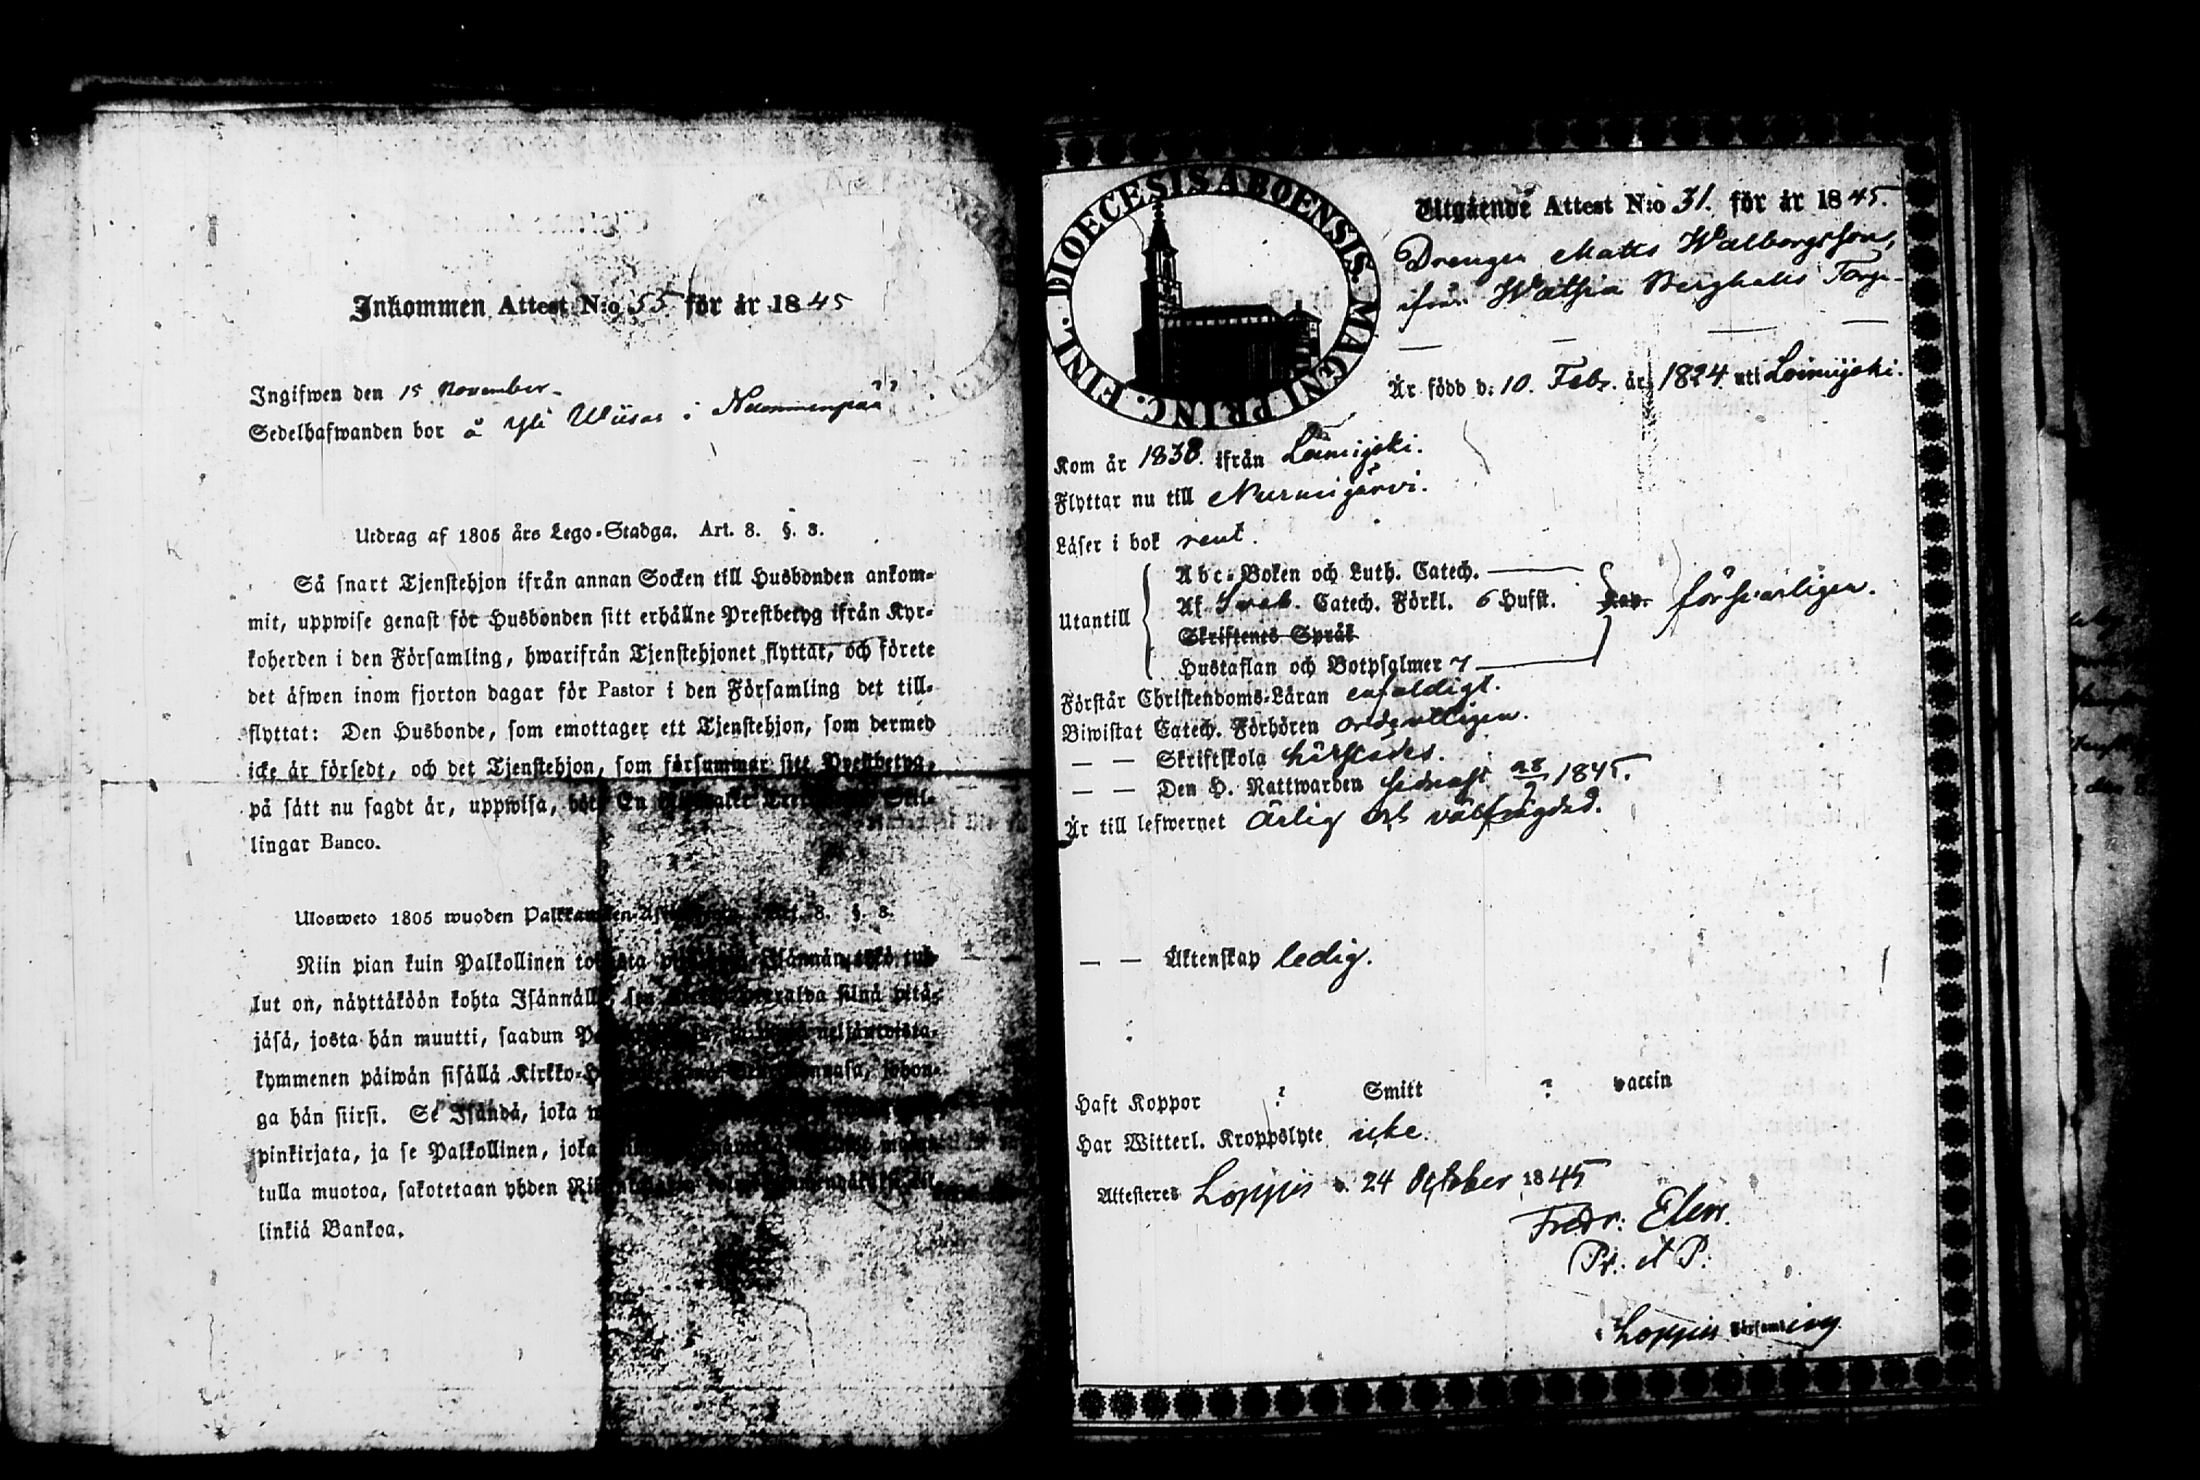 Inkommen Attest N:o 55 för år 1845
Ingifwen den 15 November
Sedelhafwanden bor å Yli Wiisas i Nummenpää
Utdrag af 1805 års Lego-Stadga. Art. 8. §. 3.
Så snart Tjenstehjon ifrån annan Socken till Husbonden ankom-
mit, uppwise genast för Husbonden sitt erhållne Prestbetyg ifrån Kyr-
koherden i den Församling, hwarifrån Tjenstehjonet flyttat, och förete
det äfwen inom fjorton dagar för Pastor i den Församling det till-
flyttat: Den Husbonde, som emottager ett Tjenstehjon, som dermed
icke är försedt, och det Tjenstehjon, som försummar sitt Prestbetyg,
på sätt nu sagdt är, uppwisa, böte En Skil-
lingar Banco.
Ulosweto 1805 wuoden Art. 8. §. 3.
Niin pian kuin Palkollinen tul-
lut on, näyttäköön kohta Isännälle sen siinä pitä-
jäsä, josta hän muutti, saadun neljäntoista-
kymmenen päiwän sisällä Kirkko- johon-
ga hän siirsi. Se Isändä, joka
pinkirjata, ja se Palkollinen, joka
tulla muotoa, sakotetaan yhden kil-
linkiä Bankoa.
DIOECESIS ABOENSIS. MAGNI PRINC. FINL.
Utgående Attest N:o 31. för år 1845.
Drengen Matts Walborgsson,
ifrån Torp
År född d. 10. Febr. år 1824 uti Loimijoki.
Kom år 1838. ifrån Loimijoki.
Flyttar nu till Nurmijärvi.
Läser i bok rent.
Utantill
Abc-Boken och Luth. Catech.
Af Sveb. Catech. Förkl. 6 Hufst. försvarligen.
Skriftenes Språk
Hustaflan och Botpsalmer 7
Förstår Christendoms-Läran enfaldigt.
Biwistat Catech. Förhören ordentligen.
— — Skriftskola härstädes.
— — Den H. Nattwarden sednast 1845.
Är till lefwernet ärlig och välfrägdad.
— — Äktenskap ledig.
Haft Koppor ? Smitt ? vaccin
Har Witterl. Kroppslyte icke.
Attesteres Loppis d. 24 October 1845
Fredr: Elen.
P.
Loppis Församling